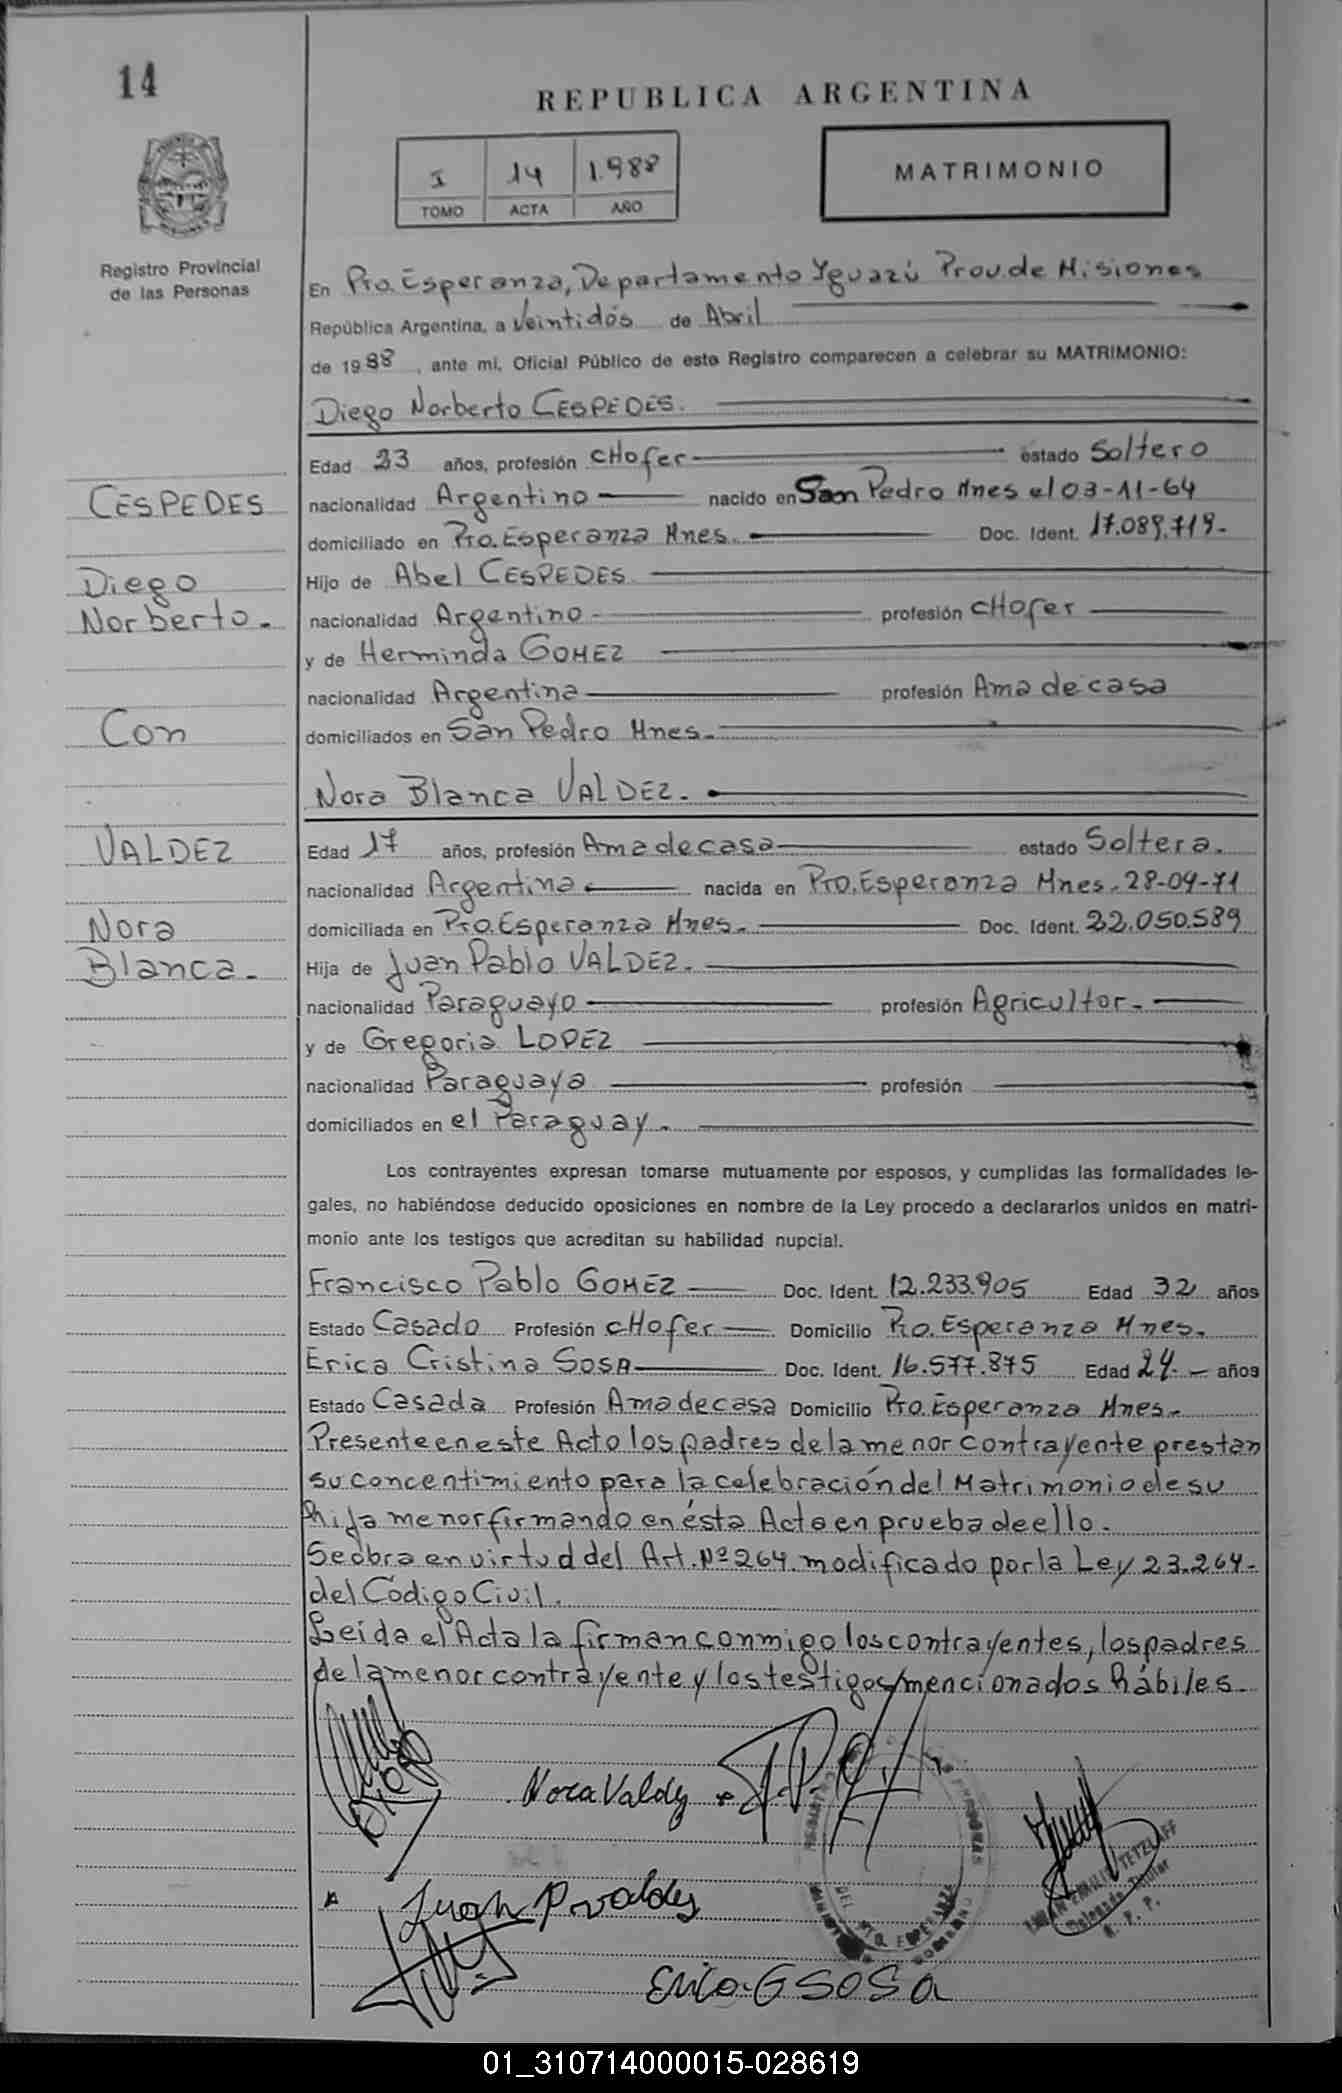 14
REPUBLICA ARGENTINA
I 14 1.988
TOMO ACTA AÑO
MATRIMONIO
Registro Provincial
de las Personas
En Pto. Esperanza, Departamento Yguazú Prov. de Misiones
República Argentina, a Veintidós de Abril
de 1988, ante mi, Oficial Público de este Registro comparecen a celebrar su MATRIMONIO:
Diego Norberto CESPEDES.
Edad 23 años, profesión CHofer estado Soltero
nacionalidad Argentino nacido en San Pedro Mnes el 03-11-64
domiciliado en Pto. Esperanza Mnes. Doc. Ident. 17.089.719-
Hijo de Abel CESPEDES
nacionalidad Argentino profesión CHofer
y de Herminda GOMEZ
nacionalidad Argentina profesión Ama de casa
domiciliados en San Pedro Mnes.
CESPEDES
Diego
Norberto.
Con
VALDEZ
Nora
Blanca.
Nora Blanca VALDEZ.
Edad 17 años, profesión Ama de casa estado Soltera.
nacionalidad Argentina nacida en Pto. Esperanza Mnes. 28-04-71
domiciliada en Pto. Esperanza Mnes. Doc. Ident. 22.050.589
Hija de Juan Pablo VALDEZ.
nacionalidad Paraguayo profesión Agricultor.
y de Gregoria LOPEZ
nacionalidad Paraguaya profesión
domiciliados en el Paraguay.
Los contrayentes expresan tomarse mutuamente por esposos, y cumplidas las formalidades le-
gales, no habiéndose deducido oposiciones en nombre de la Ley procedo a declararlos unidos en matri-
monio ante los testigos que acreditan su habilidad nupcial.
Francisco Pablo GOMEZ Doc. Ident. 12.233.905 Edad 32 años
Estado Casado Profesión CHofer Domicilio Pto. Esperanza Mnes.
Erica Cristina SOSA Doc. Ident. 16.577.875 Edad 24.- años
Estado Casada Profesión Ama de casa Domicilio Pto. Esperanza Mnes.
Presente en este Acto los padres de la menor contrayente prestan
su concentimiento para la celebración del Matrimonio de su
hija menor firmando en ésta Acto en prueba de ello.
Se obra en virtud del Art. Nº 264. modificado por la Ley 23.264-
del Código Civil.
Leída el Acta la firman conmigo los contrayentes, los padres
de la menor contrayente y los testigos mencionados hábiles.
Nora Valdez
TETZLAFF
Delegado Titular
R. P. P.
Juan P Valdez
Erica G SOSA
01_310714000015-028619